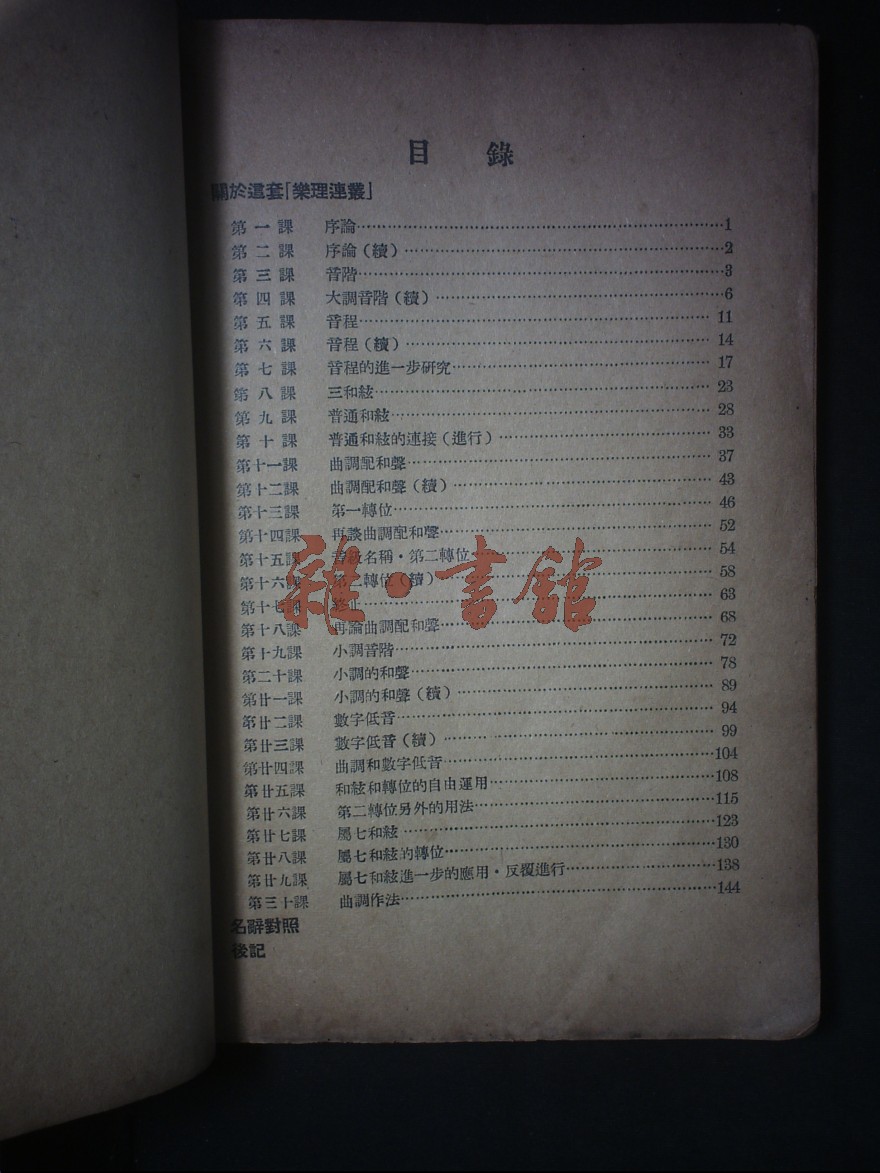 目錄
關於這套「樂理連叢」
第一課 序論……1
第二課 序論（續）……2
第三課 音階……3
第四課 大調音階（續）……6
第五課 音程……11
第六課 音程（續）……14
第七課 音程的進一步研究……17
第八課 三和絃……23
第九課 普通和絃……28
第十課 普通和絃的連接（進行）……33
第十一課 曲調配和聲……37
第十二課 曲調配和聲（續）……43
第十三課 第一轉位……46
第十四課 再談曲調配和聲……52
第十五課 音級名稱・第二轉位……54
第十六課 第二轉位（續）……58
第十七課 終止……63
第十八課 再論曲調配和聲……68
第十九課 小調音階……72
第二十課 小調的和聲……78
第廿一課 小調的和聲（續）……89
第廿二課 數字低音……94
第廿三課 數字低音（續）……99
第廿四課 曲調和數字低音……104
第廿五課 和絃和轉位的自由運用……108
第廿六課 第二轉位另外的用法……115
第廿七課 屬七和絃……123
第廿八課 屬七和絃的轉位……130
第廿九課 屬七和絃進一步的應用・反覆進行……138
第三十課 曲調作法……144
名辭對照
後記
雜・書館